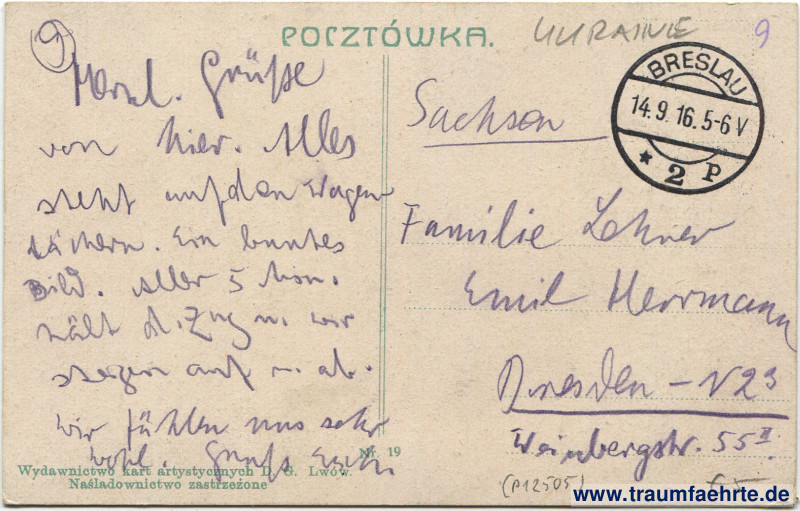 9
POCZTÓWKA.
UKRAINE
9
BRESLAU
14.9.16.5-6V
* 2 P
Herzl. Grüße
von hier. Alles
steht auf den Wagen
dächern. Ein buntes
Bild. Aller 5 Mon.
hält d. Zug u. wir
steigen auf u. ab.
Wir fühlen uns sehr
wohl. Gruß
Sachsen
Familie Lehrer
Emil Herrmann
Dresden - N 23
Weinbergstr. 55 II
Nr. 19
Wydawnictwo kart artystycznych D. G. Lwów.
Naśladownictwo zastrzeżone
(P12505)
www.traumfaehrte.de